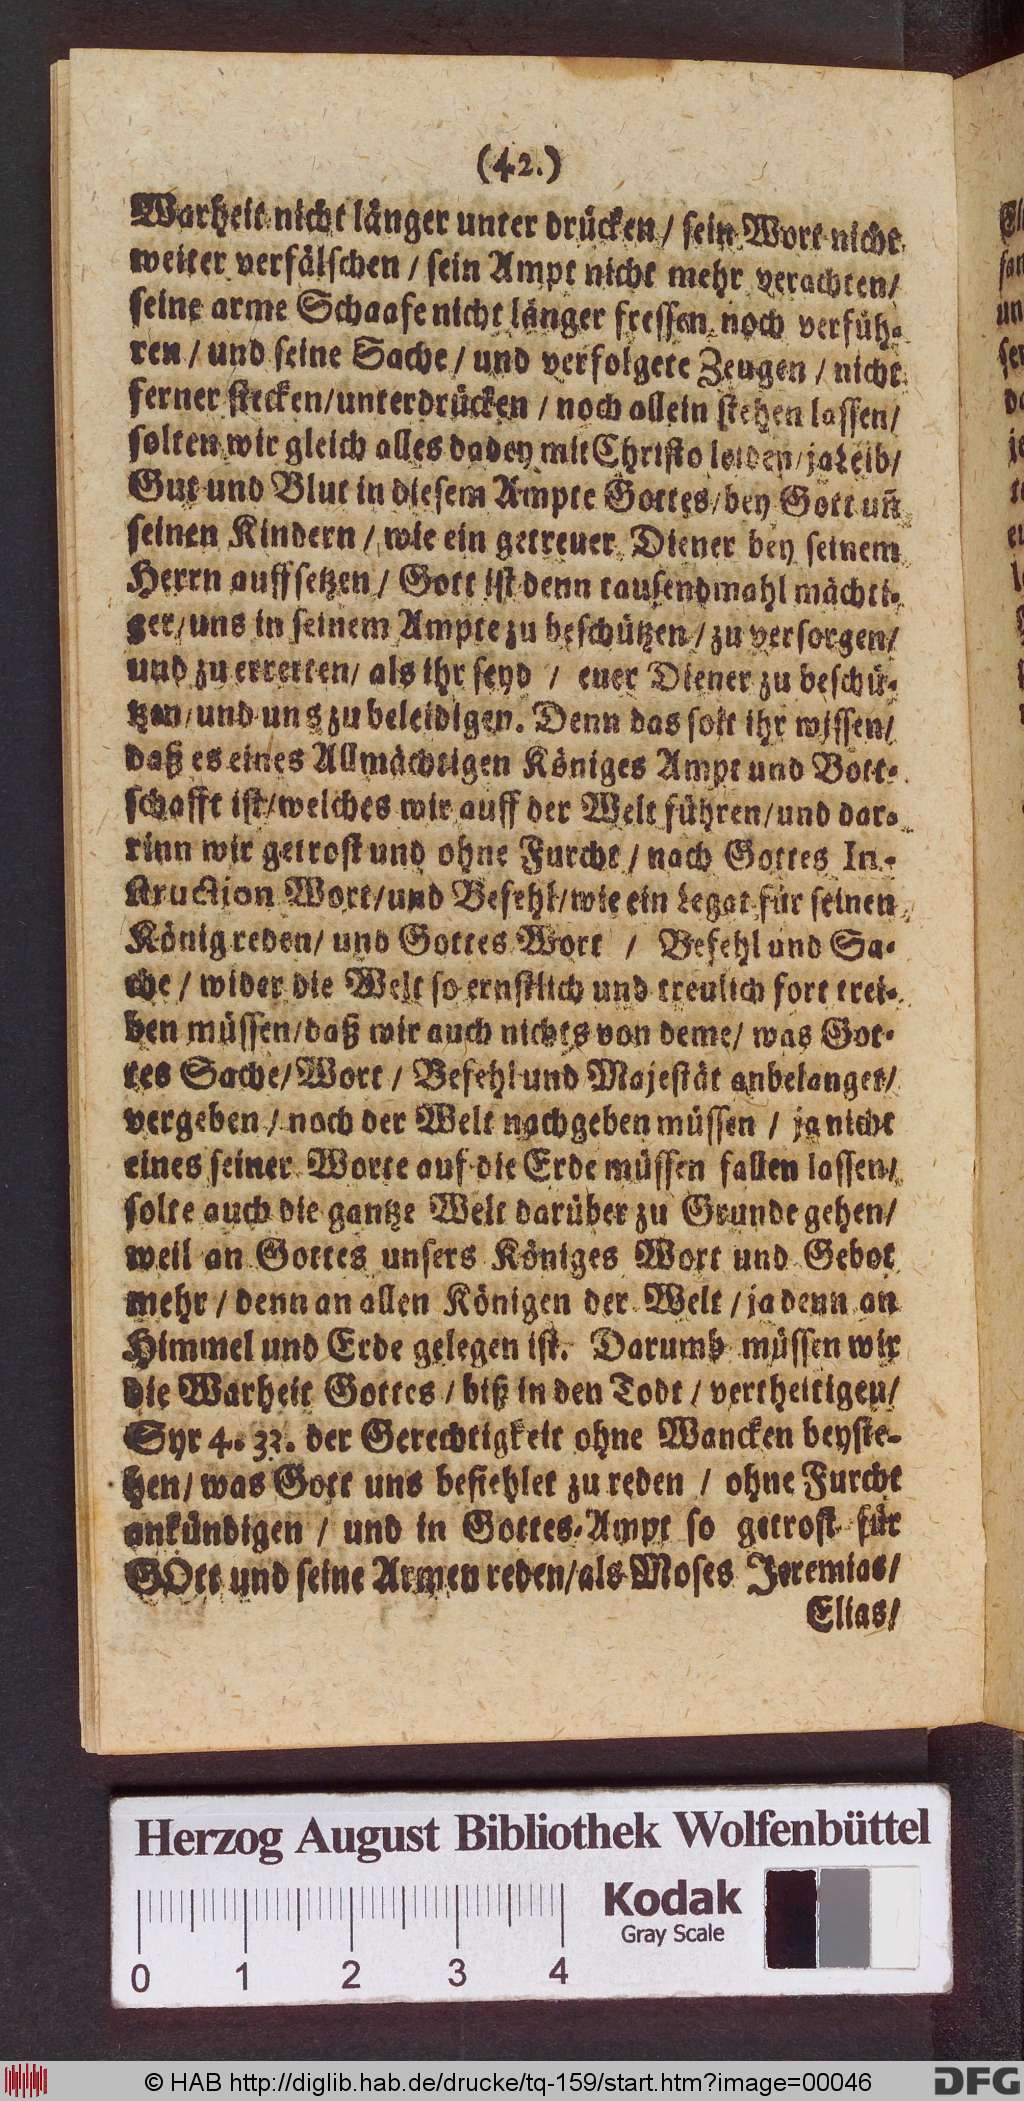 (42.)
Warheit nicht länger unter drücken / sein Wort nicht
weiter verfälschen / sein Ampt nicht mehr verachten/
seine arme Schaafe nicht länger fressen noch verfüh-
ren / und seine Sache / und verfolgete Zeugen / nicht
ferner stecken/unterdrücken / noch allein stehen lassen/
solten wir gleich alles dabey mit Christo leiden/ja Leib/
Gut und Blut in diesem Ampte Gottes/bey Gott uñ
seinen Kindern / wie ein getreuer Diener bey seinem
Herrn auffsetzen / Gott ist denn tausendmahl mächti-
ger/uns in seinem Ampte zu beschützen/zu versorgen/
und zu erretten/ als ihr seyd / euer Diener zu beschü-
tzen/und uns zu beleidigen. Denn das solt ihr wissen/
daß es eines Allmächtigen Königes Ampt und Bott-
schafft ist/welches wir auff der Welt führen/und dar-
rinn wir getrost und ohne Furcht / nach Gottes In-
struction Wort/und Befehl/wie ein Legat für seinen
König reden/ und Gottes Wort / Befehl und Sa-
che / wider die Welt so ernstlich und treulich fort trei-
ben müssen/daß wir auch nichts von deme/ was Got-
tes Sache/Wort / Befehl und Majestät anbelanget/
vergeben / noch der Welt nachgeben müssen / ja nicht
eines seiner Worte auf die Erde müssen fallen lassen/
solte auch die gantze Welt darüber zu Grunde gehen/
weil an Gottes unsers Königes Wort und Gebot
mehr / denn an allen Königen der Welt / ja denn an
Himmel und Erde gelegen ist. Darumb müssen wir
die Warheit Gottes / biß in den Todt / vertheitigen/
Syr 4. 33. der Gerechtigkeit ohne Wancken beyste-
hen/was Gott uns befiehlet zu reden / ohne Furcht
ankündigen / und in Gottes-Ampt so getrost für
GOtt und seine Armen reden/als Moses Jeremias/
Elias/
Herzog August Bibliothek Wolfenbüttel
Kodak
Gray Scale
0 1 2 3 4
© HAB http://diglib.hab.de/drucke/tq-159/start.htm?image=00046
DFG